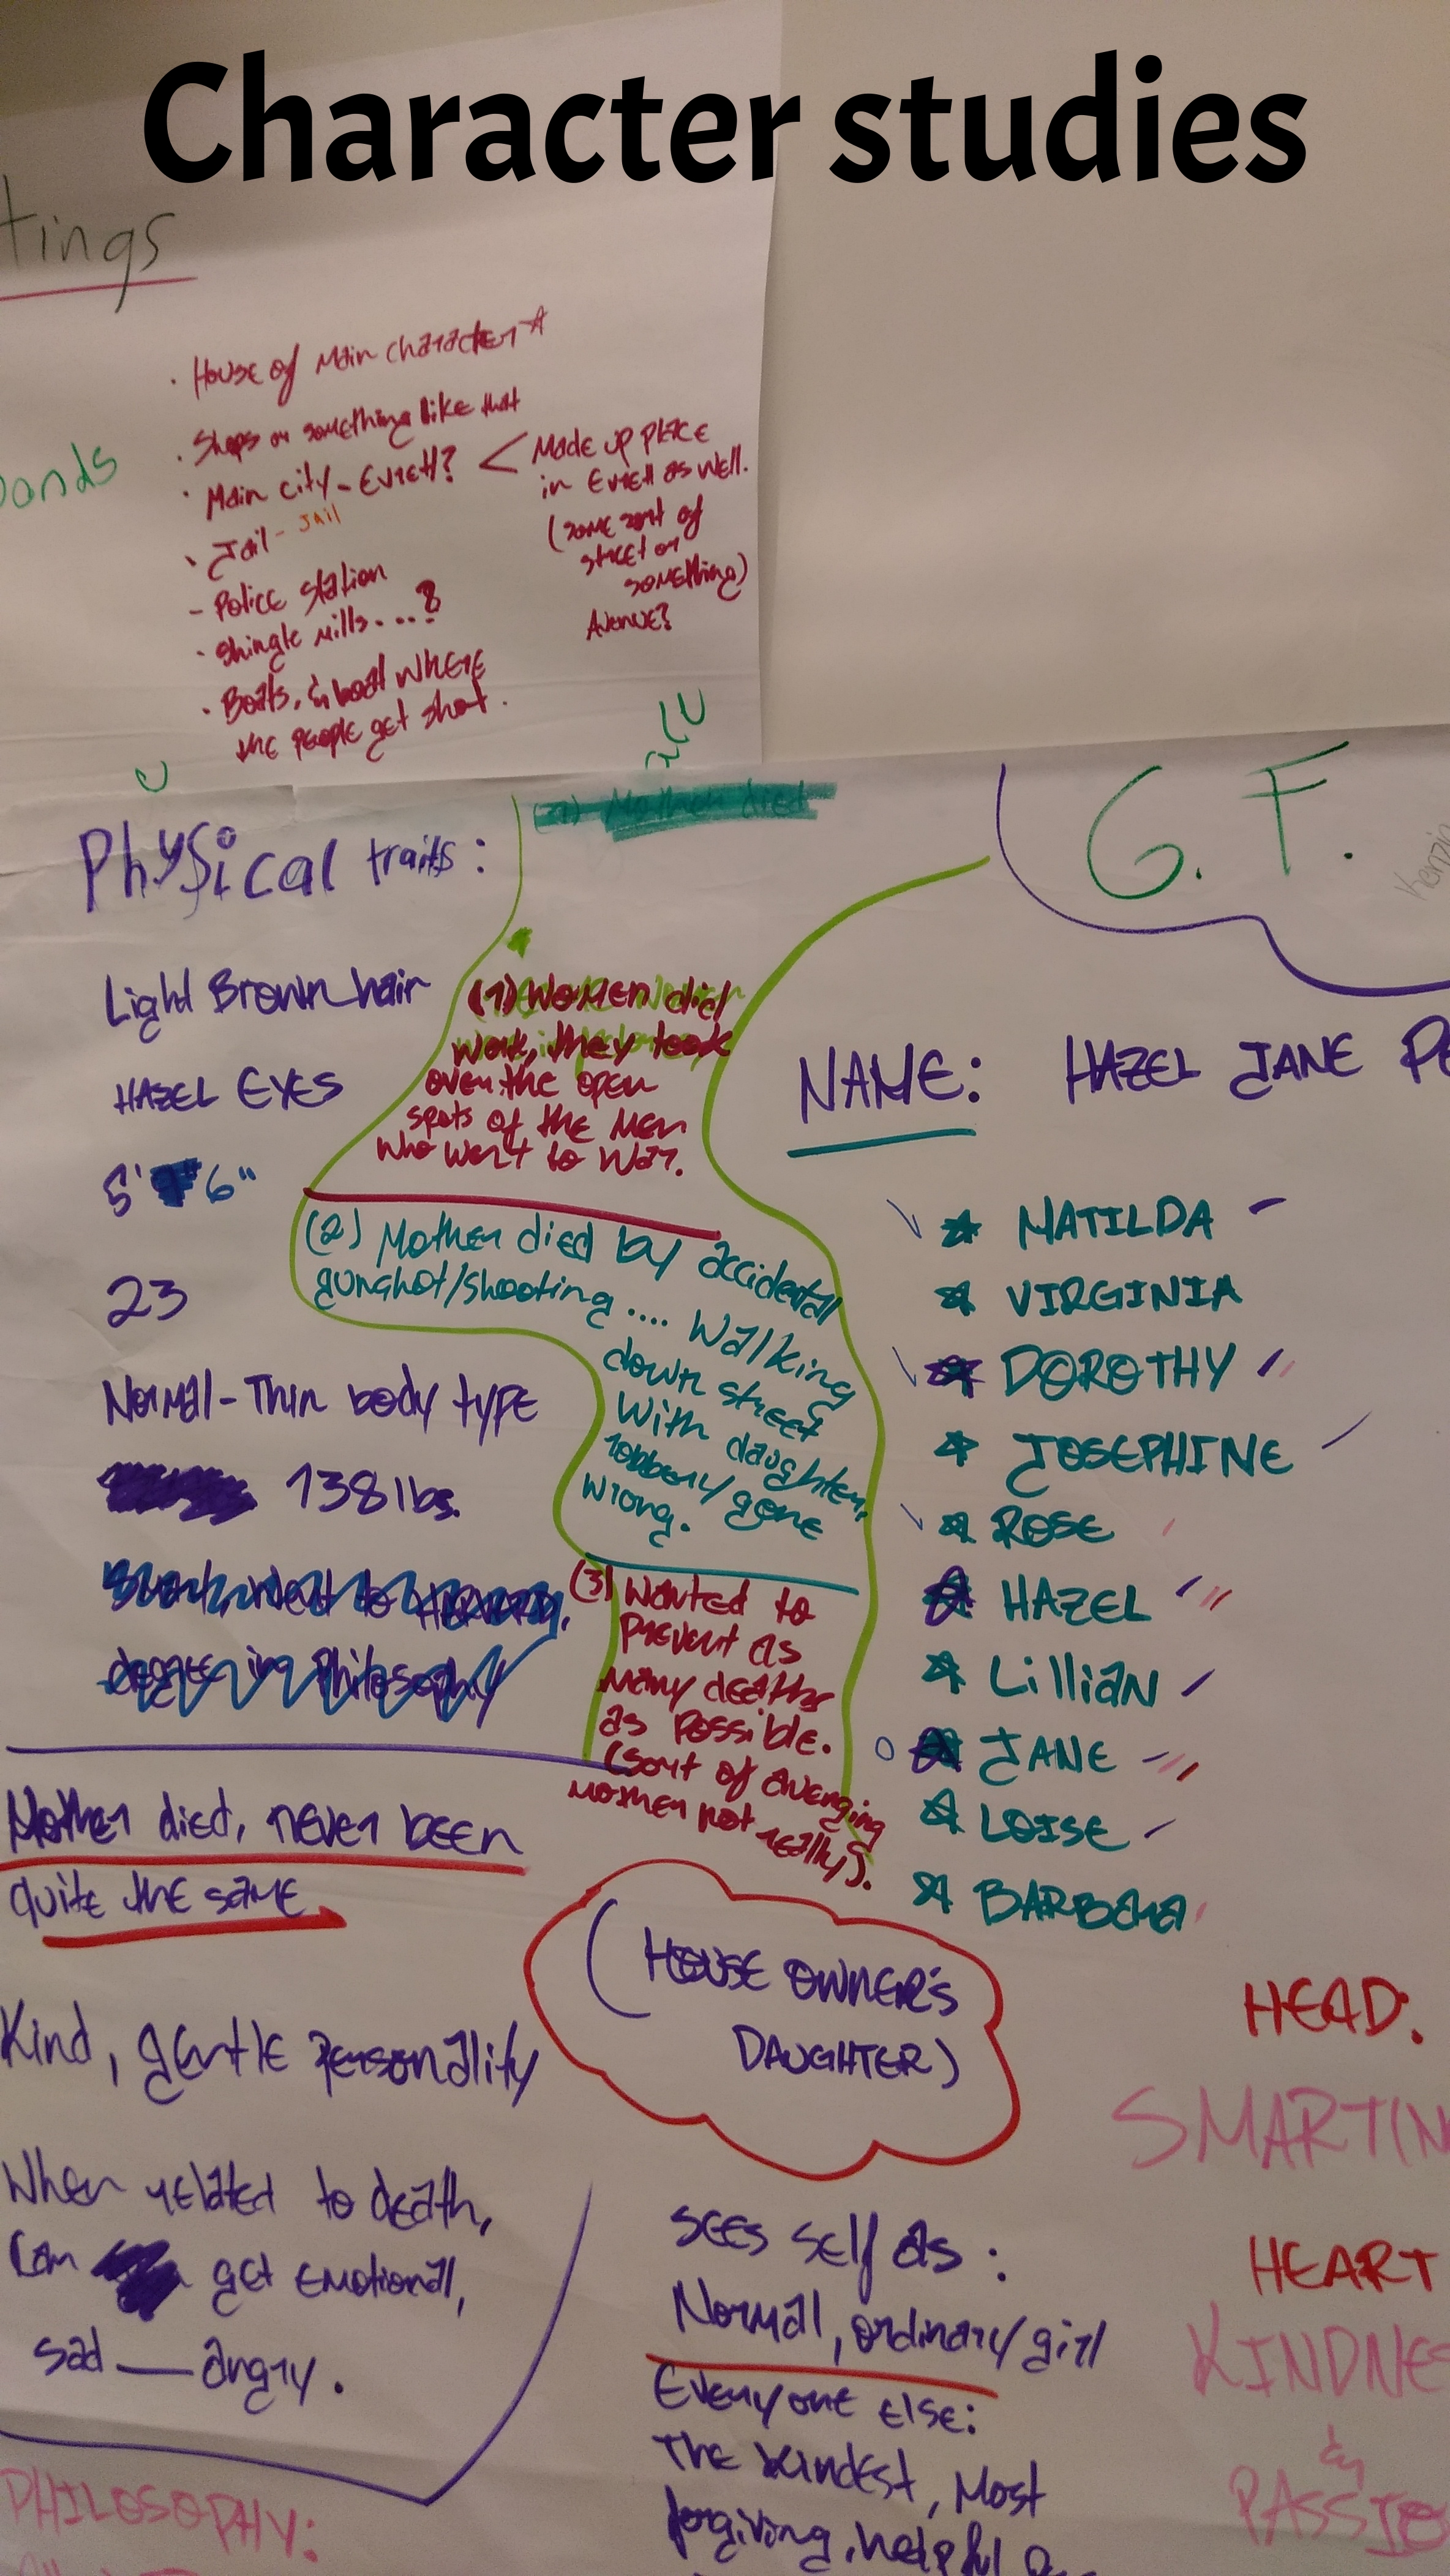 Character studies
tings
· House of Main character
· Shops or something like that
· Main city - Everett? < Made up place
in Everett as well.
(some sort of
street or
something)
Avenue?
· Jail - Jail
- Police Station
· Shingle mills....?
· Boats, & boat where
the people get shot.
Physical traits:
Light Brown hair
HAZEL EYES
5' 6"
23
Normal-Thin body type
138 lbs.
Mother died
(1) Women did
work, they took
over the open
spots of the men
who went to war.
(2) Mother died by accidental
gunshot/shooting .... Walking
down street
with daughter,
robbery gone
wrong.
(3) Wanted to
prevent as
many deaths
as possible.
(sort of avenging
mother not really).
G. F.
NAME: HAZEL JANE
MATILDA
VIRGINIA
DOROTHY
JOSEPHINE
ROSE
HAZEL
LilliaN
JANE
LOISE
BARBara
Mother died, never been
quite the same
Kind, gentle personality
When related to death,
Can get emotional,
sad — angry.
(HOUSE OWNER'S
DAUGHTER)
sees self as:
Normal, ordinary girl
Everyone else:
The kindest, Most
forgiving, helpful
HEAD:
SMARTIN
HEART
KINDNES
&
PASSIO
PHILOSOPHY: